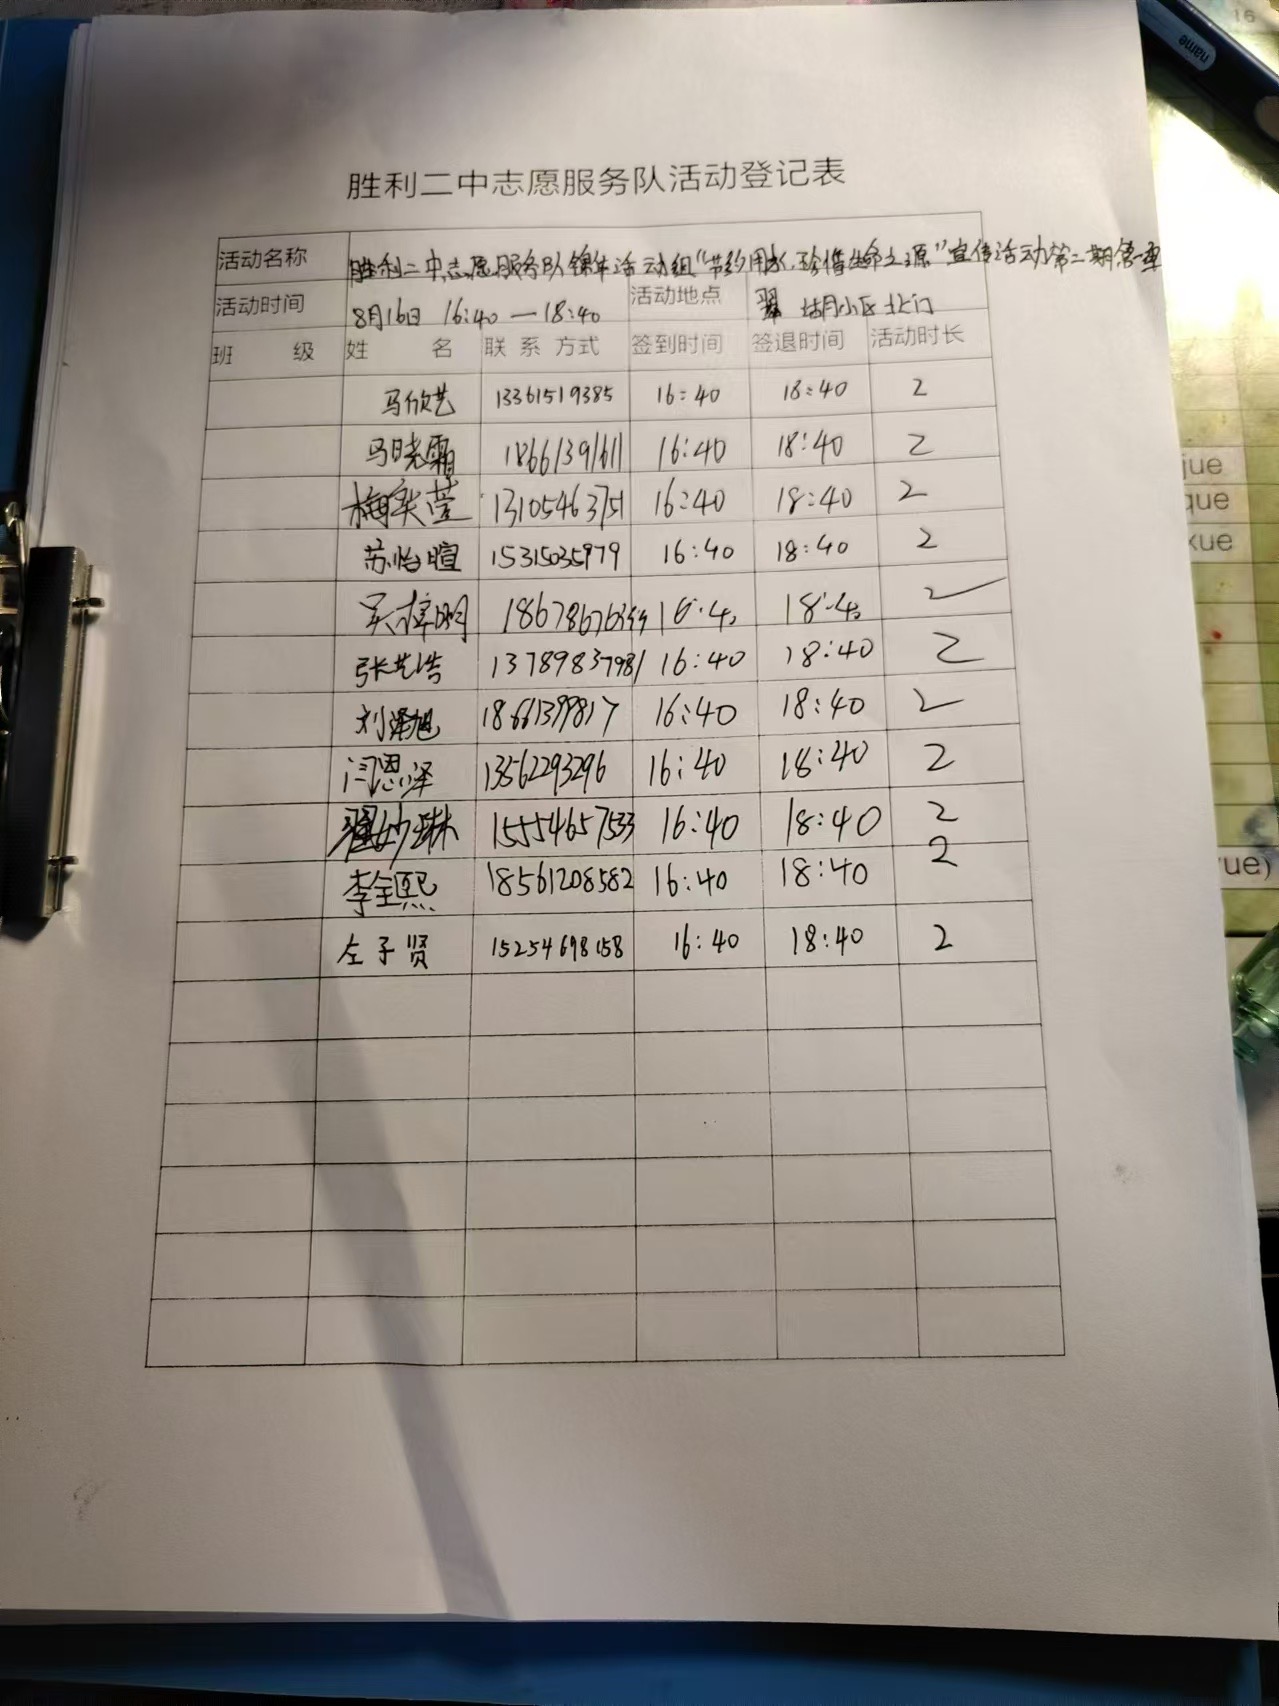 胜利二中志愿服务队活动登记表
活动名称 胜利二中志愿服务队锦华活动组“节约用水,珍惜生命之源”宣传活动第二期第一
活动时间 8月16日 16:40—18:40 活动地点 翠湖小区北门
班 级 姓 名 联系方式 签到时间 签退时间 活动时长
马欣艺 13361519385 16:40 18:40 2
马晓霜 18661391611 16:40 18:40 2
梅奕萱 13105463751 16:40 18:40 2
苏怡暄 15315035979 16:40 18:40 2
吴梓明 16:40 18:40 2
张艺浩 13789837981 16:40 18:40 2
刘泽旭 18661399817 16:40 18:40 2
闫恩泽 13562293296 16:40 18:40 2
翟妙琳 15554657533 16:40 18:40 2
李全熙 18561208582 16:40 18:40 2
左子贤 15254698158 16:40 18:40 2
name
16
jue
que
xue